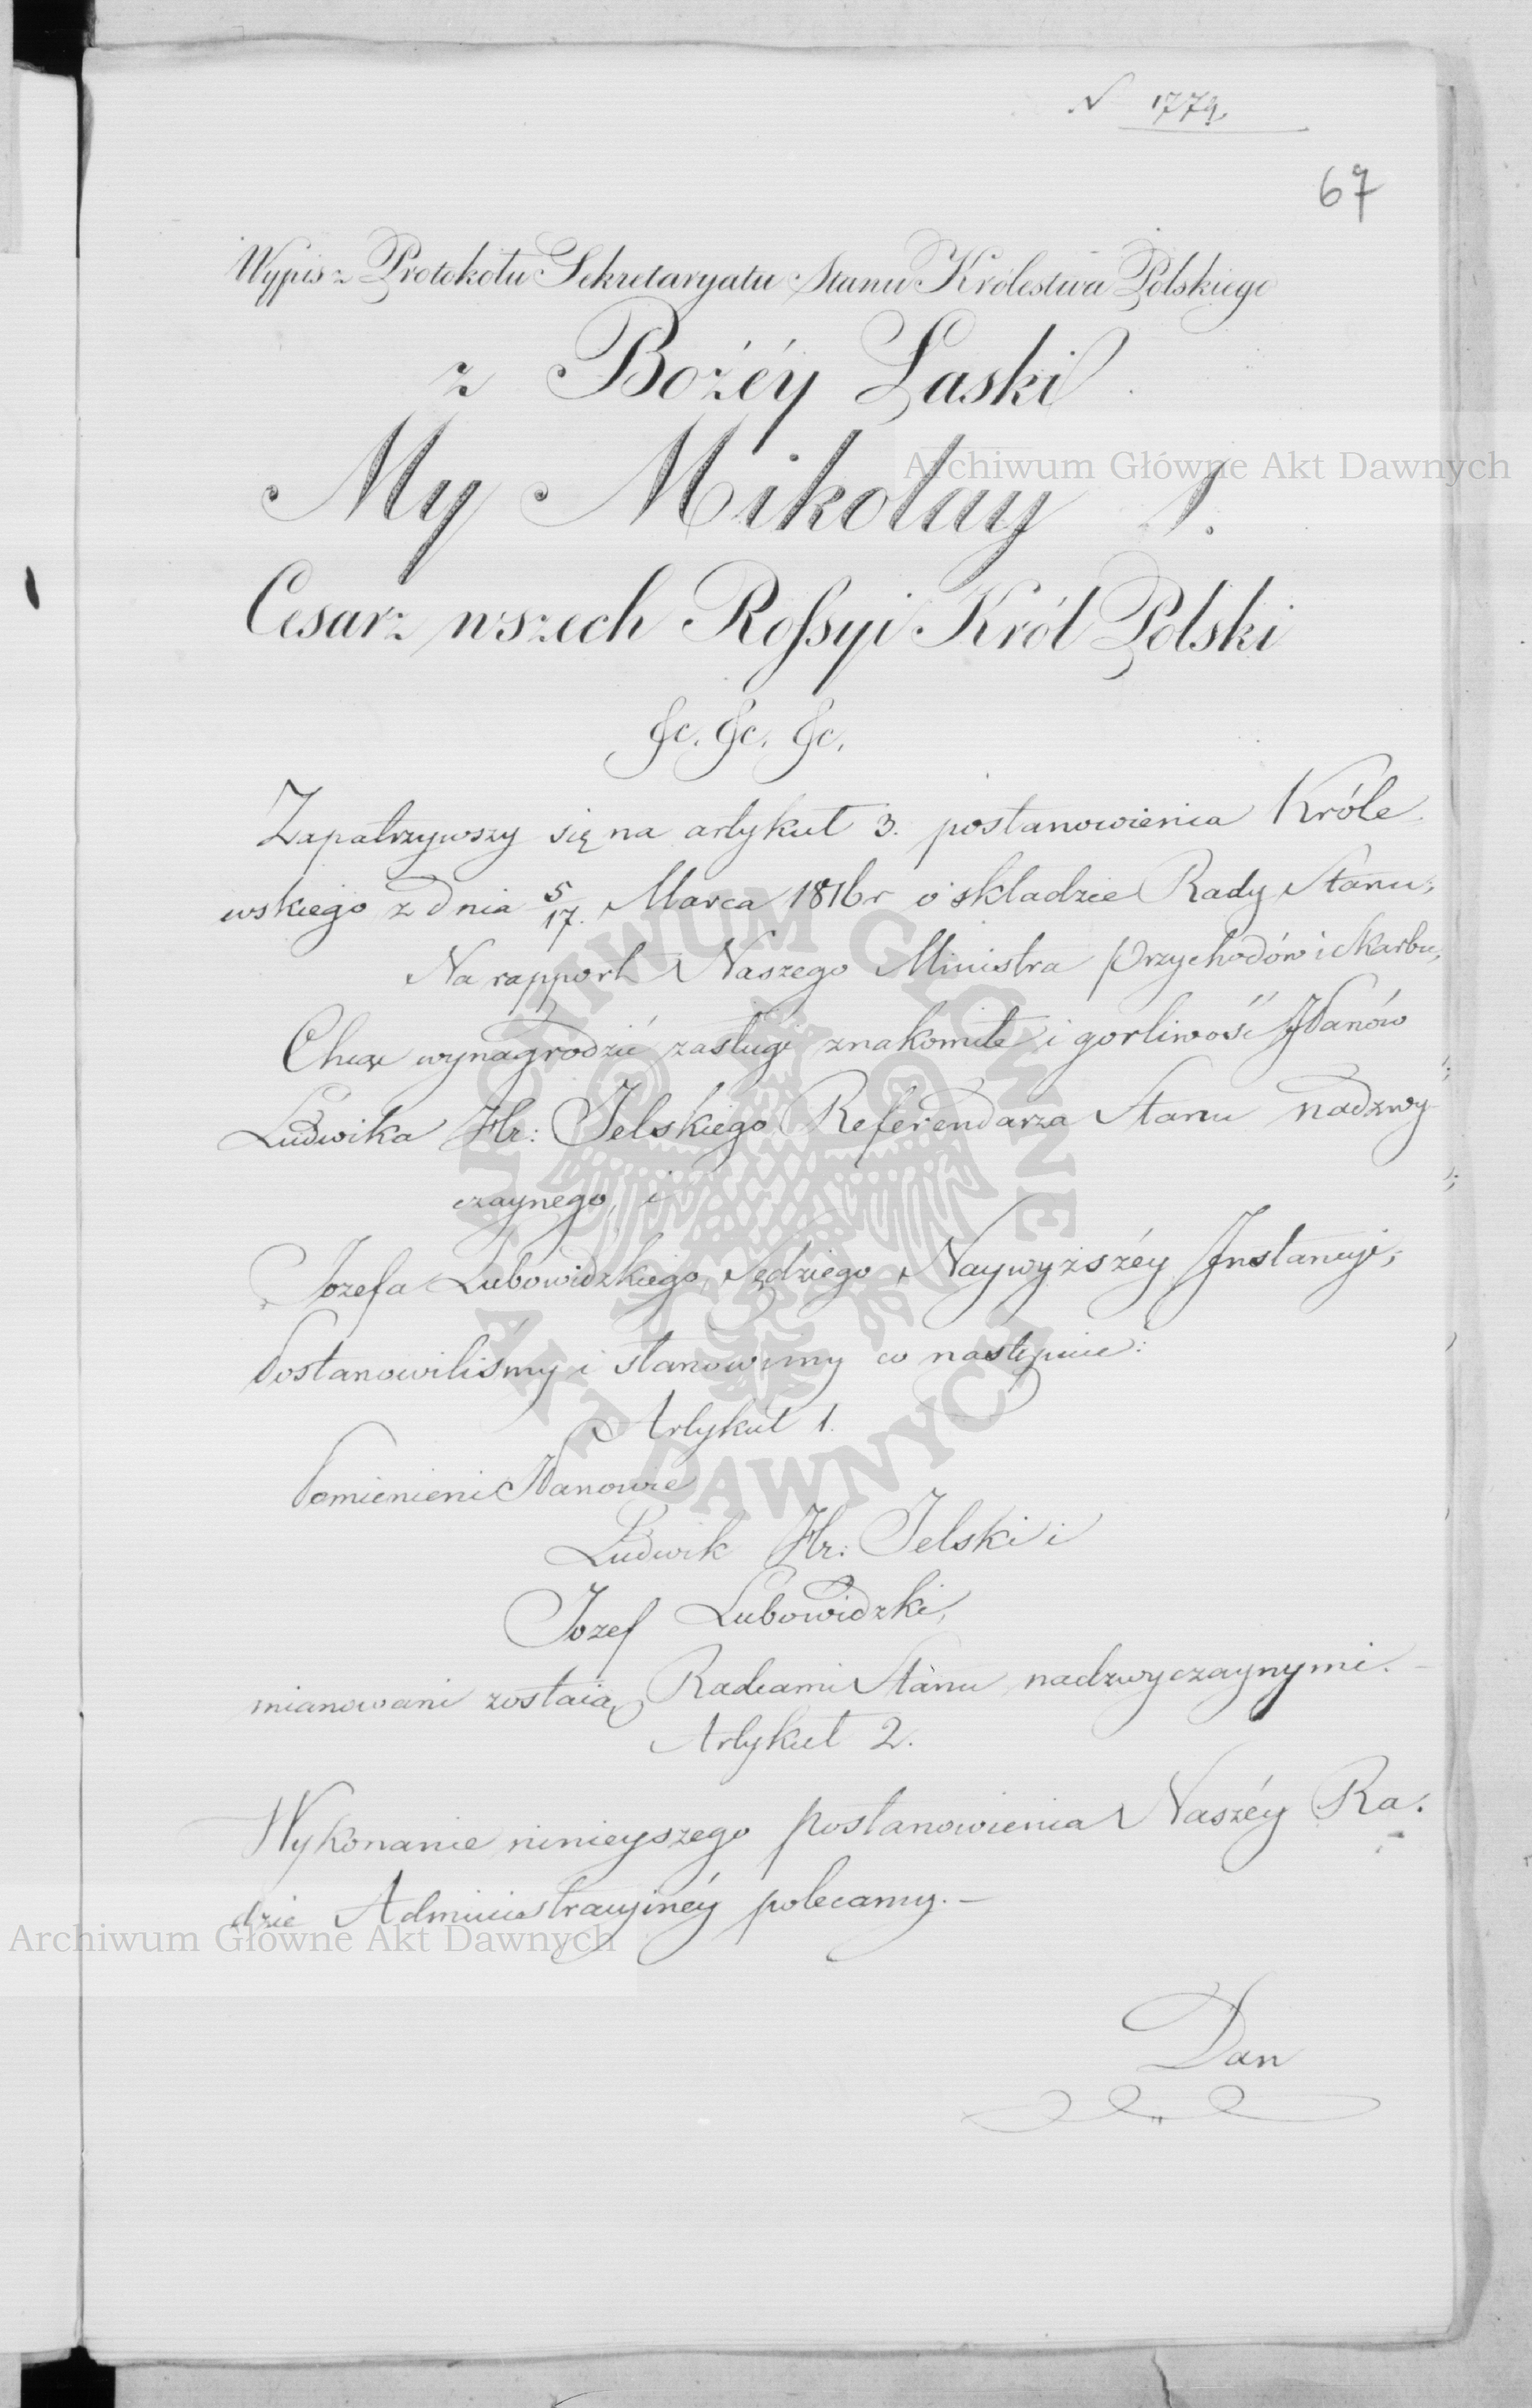 N 1779.
67
Wypis z Protokołu Sekretaryatu Stanu Królestwa Polskiego
z Bożéy Łaski
My Mikołay I.
Cesarz wszech Rossyi Król Polski
&c. &c. &c.
Zapatrzywszy się na artykuł 3. postanowienia Króle
wskiego z dnia 5/17. Marca 1816 r o składzie Rady Stanu;
Na rapport Naszego Ministra Przychodów i Skarbu,
Chcąc wynagrodzić zasługi znakomite i gorliwość JPanów
Ludwika Hr: Jelskiego Referendarza Stanu nadzwy
czaynego, i
Jozefa Lubowidzkiego, Sędziego Naywyższéy Instancyi;
Postanowiliśmy i stanowimy co następuie:
Artykuł 1.
Pomienieni JPanowie
Ludwik Hr: Jelski i
Jozef Lubowidzki,
mianowani zostaią Radcami Stanu nadzwyczaynymi.
Artykuł 2.
Wykonanie ninieyszego postanowienia Naszéy Ra-
dzie Administracyinéy polecamy.—
Dan
Archiwum Główne Akt Dawnych
Archiwum Główne Akt Dawnych
ARCHIWUM GŁÓWNE AKT DAWNYCH